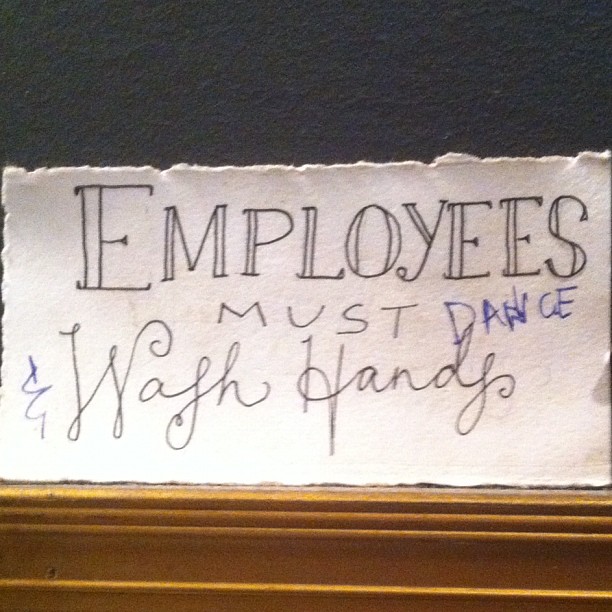 EMPLOYEES
MUST DANCE
& Wash Hands